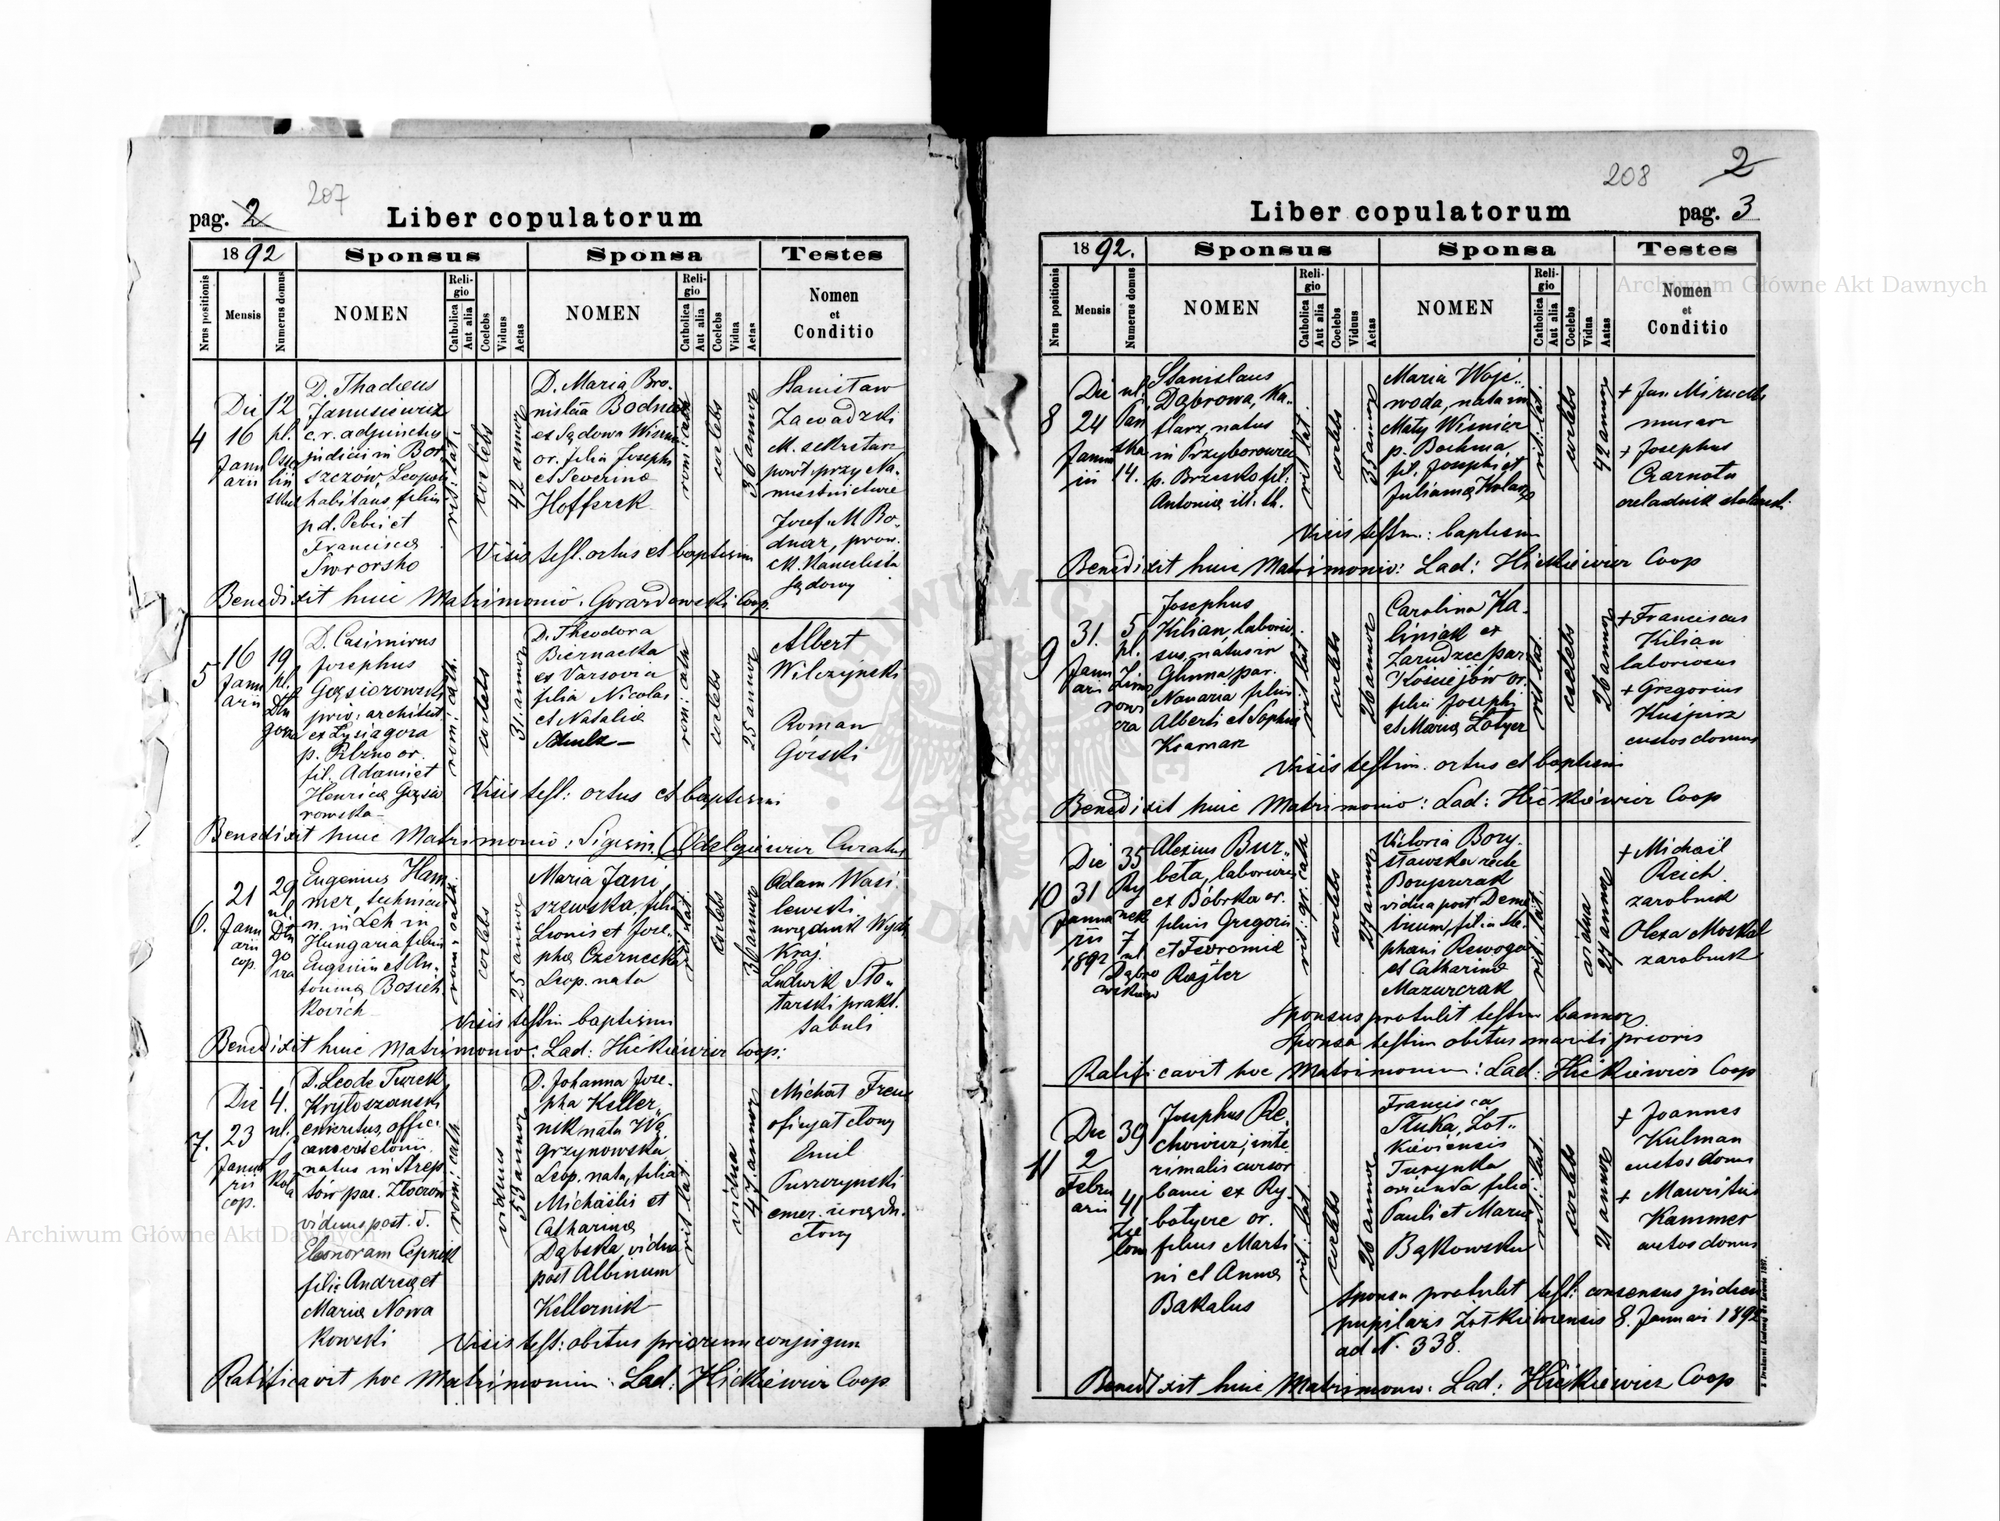 207
pag. 2
Liber copulatorum
1892
Sponsus
Sponsa
Testes
Nrus positionis
Mensis
Numerus domus
NOMEN
Religio
Catholica
Aut alia
Coelebs
Viduus
Aetas
NOMEN
Religio
Catholica
Aut alia
Coelebs
Vidua
Aetas
Nomen
et
Conditio
4
Die
16
Janu
arii
12
pl.
D. Thadeus
Janusiewicz
c.r. adjunctus
judicii in Bor-
szczów, Leopoli
habitans, filius
p.d. Petri et
Francisca
rit: lat:
coelebs
42 annor
D. Maria Bro-
nisława Bodnar
ex Sądowa Wisznia
or. filia Josephi
et Severina
Hofferek
rom: cath
coelebs
36 annor
Stanisław
Zawadzki
M. sekretarz
powt. przy Na-
miestnictwie
Józef M Bo-
dnar, prow.
M. Kancelista
sądowy
Visis test. ortus et baptismi
Benedixit huic Matrimonio. Coop.
5
16
Janu
arii
19
pl.
D. Casimirus
Josephus
Gąsiorowski
priv: architect
ex Łysiagóra
p. Pilzno or.
fil. Adami et
Henrica Gąsio
rowska
rom: cath.
coelebs
31. annor
D. Theodora
Biernacka
ex Varsovia
filia Nicolai
et Natalia
rom: cath
coelebs
25 annor
Albert
Wilczyński
Roman
Górski
Visis test: ortus et baptismi
Benedixit huic Matrimonio: Sigism. Curatus
6.
21
Janu
arii
cop.
29
ul.
Eugenius Ham
mer, technicus
n. in Leh in
Hungaria filius
Eugenii et An-
tonina
rom: cath:
coelebs
25 annor
Maria Jani
szewska, filia
Leonis et Jose-
pha Czernecka
Leop. nata
rit lat
coelebs
36 annor
Adam Wasi-
lewski
urzędnik Wydz
Kraj.
Ludwik Sto-
larski prakt.
tabuli
Visis testim baptismi
Benedixit huic Matrimonio: Lad: Hickiewicz Coop:
7.
Die
23
Janua
rii
cop.
4.
ul.
D. Leo de Turek
emeritus offic.
natus in Strep
tów par. Złoczów
viduus post. d.
Eleonoram
filius Andrea et
Maria Nowa
kowski
rom: cath
viduus
53 annor
D. Johanna Jose-
pha Keller-
nik nata Wę
grzynowska
Leop. nata, filia
Michaëlis et
Catharina
Dąbska, vidua
post Albinum
Kellernik
rit lat
vidua
47 annor
Michał Freu
oficyał cłowy
Emil
Puszczyński
emer. urzędn.
cłowy
Visis test: obitus priorum conjugum
Ratificavit hoc Matrimonium: Lad: Hickiewicz Coop
208
2
Liber copulatorum
pag. 3
1892.
Sponsus
Sponsa
Testes
Nrus positionis
Mensis
Numerus domus
NOMEN
Religio
Catholica
Aut alia
Coelebs
Viduus
Aetas
NOMEN
Religio
Catholica
Aut alia
Coelebs
Vidua
Aetas
Nomen
et
Conditio
8
Die
24
Janua
rii
ul.
Pań
ska
14.
Stanislaus
Dąbrowa, Ka-
flarz, natus
in Przyborowie
p. Brzesko fil:
Antonia ill. th.
rit lat.
coelebs
35 annor
Maria Woje-
woda, nata in
Mały Wiśnicz
p. Bochnia,
fil. Josephi et
Juliana
rit: lat.
coelebs
42 annor
+ Jan
murarz
+ Josephus
Czarnota
czeladnik stolarski
Visis testim: baptism
Benedixit huic Matrimonio: Lad: Hickiewicz Coop
9
31.
Janu
arii
5
pl.
Josephus
Kilian, laborio-
sus, natus in
Glinna par.
Nawaria filius
Alberti et Sophia
Kramarz
rit lat
coelebs
26 annor
Carolina Ka-
liniak ex
Zarudzce par
Kościejów or.
filia Josephi
et Maria
rit lat.
coelebs
26 annor
+ Franciscus
Kilian
laboriosus
+ Gregorius
Kuśpisz
custos domus
Visis testim. ortus et baptismi
Benedixit huic Matrimonio: Lad: Hickiewicz Coop
10
Die
31
Janua
rii
1892
35
Ry
nek
7
ul
Alexius Bur-
beta, laboriosus
ex Bóbrka or.
filius Gregorii
et Fevronia
Rajter
rit: gr. cath
coelebs
27 annor
Victoria Bory-
sławska recte
vidua post Deme
trium, filia Ste
phani
et Catharina
Mazurczak
rit. lat.
vidua
27 annor
+ Michaił
Reich
zarobnik
Olexa Moskal
zarobnik
Sponsus protulit testim bannor.
Sponsa testim obitus mariti prioris
Ratificavit hoc Matrimonium: Lad: Hickiewicz Coop
11
Die
2
Febru
arii
39
41
Zie
lona
Josephus Re-
chowicz, inte
rimalis cursor
banci ex Ry-
botycze or.
filius Marti
ni et Anna
Bakalus
rit: lat.
coelebs
26 annor
Francisca
Słuka, Żół-
kieviensis
Turynka
oriunda filia
Pauli et Maria
Bąkowska
rit: lat.
coelebs
21 annor
+ Joannes
Kulman
custos domus
+ Mauritius
Kammer
custos domus
Sponsa protulit test: consensus judicii
pupilaris Żółkiewiensis 8. Januari 1892
ad N. 338.
Benedixit huic Matrimonio: Lad: Hickiewicz Coop
Archiwum Główne Akt Dawnych
Archiwum Główne Akt Dawnych